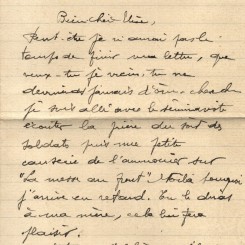 Bien chère Mère,
Peut-être je n'aurai pas le
temps de finir ma lettre, que
veux-tu je viens, tu ne
devineras jamais d'où, cherche
je suis allé avec le séminariste
écouter la prière du soir des
soldats puis une petite
causerie de l'aumônier sur
"La messe au Front". Voilà pourquoi
j'arrive en retard. Tu le diras
à ma mère, cela lui fera
plaisir.